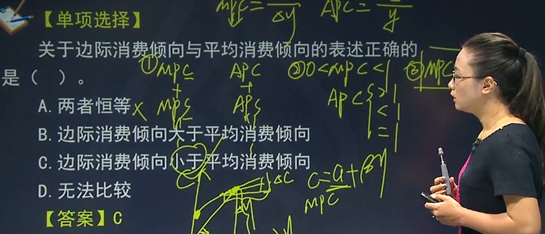 MPC = /ΔY APC = /Y
【单项选择】
关于边际消费倾向与平均消费倾向的表述正确的
是（ ）。
① MPC APC ② 0<MPC<1 ③ MPC
+ +
MPS APS
APC >1 <1 =1
A.两者恒等 ×
B.边际消费倾向大于平均消费倾向
C.边际消费倾向小于平均消费倾向
C=a+βY
MPC
ΔC
D.无法比较
【答案】C